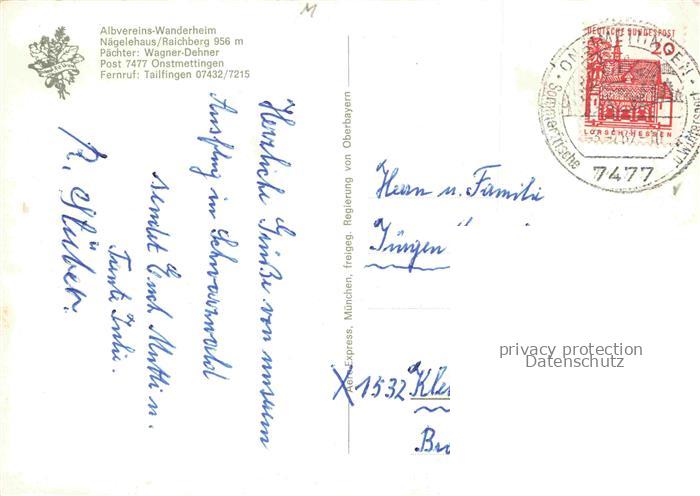 Albvereins-Wanderheim
Nägelehaus/Raichberg 956 m
Pächter: Wagner-Dehner
Post 7477 Onstmettingen
Fernruf: Tailfingen 07432/7215
M
Herzliche Grüße von unserem
Ausflug im Schwarzwald
sendet Euch Mutti u.
Tante
R. Stüber.
Aero-Express, München, freigeg. Regierung von Oberbayern
DEUTSCHE BUNDESPOST
20
LORSCH/HESSEN
ONSTMETTINGEN
Sommerfrische
7477
Herrn u. Familie
Jürgen
X 1532 Kle
privacy protection
Datenschutz